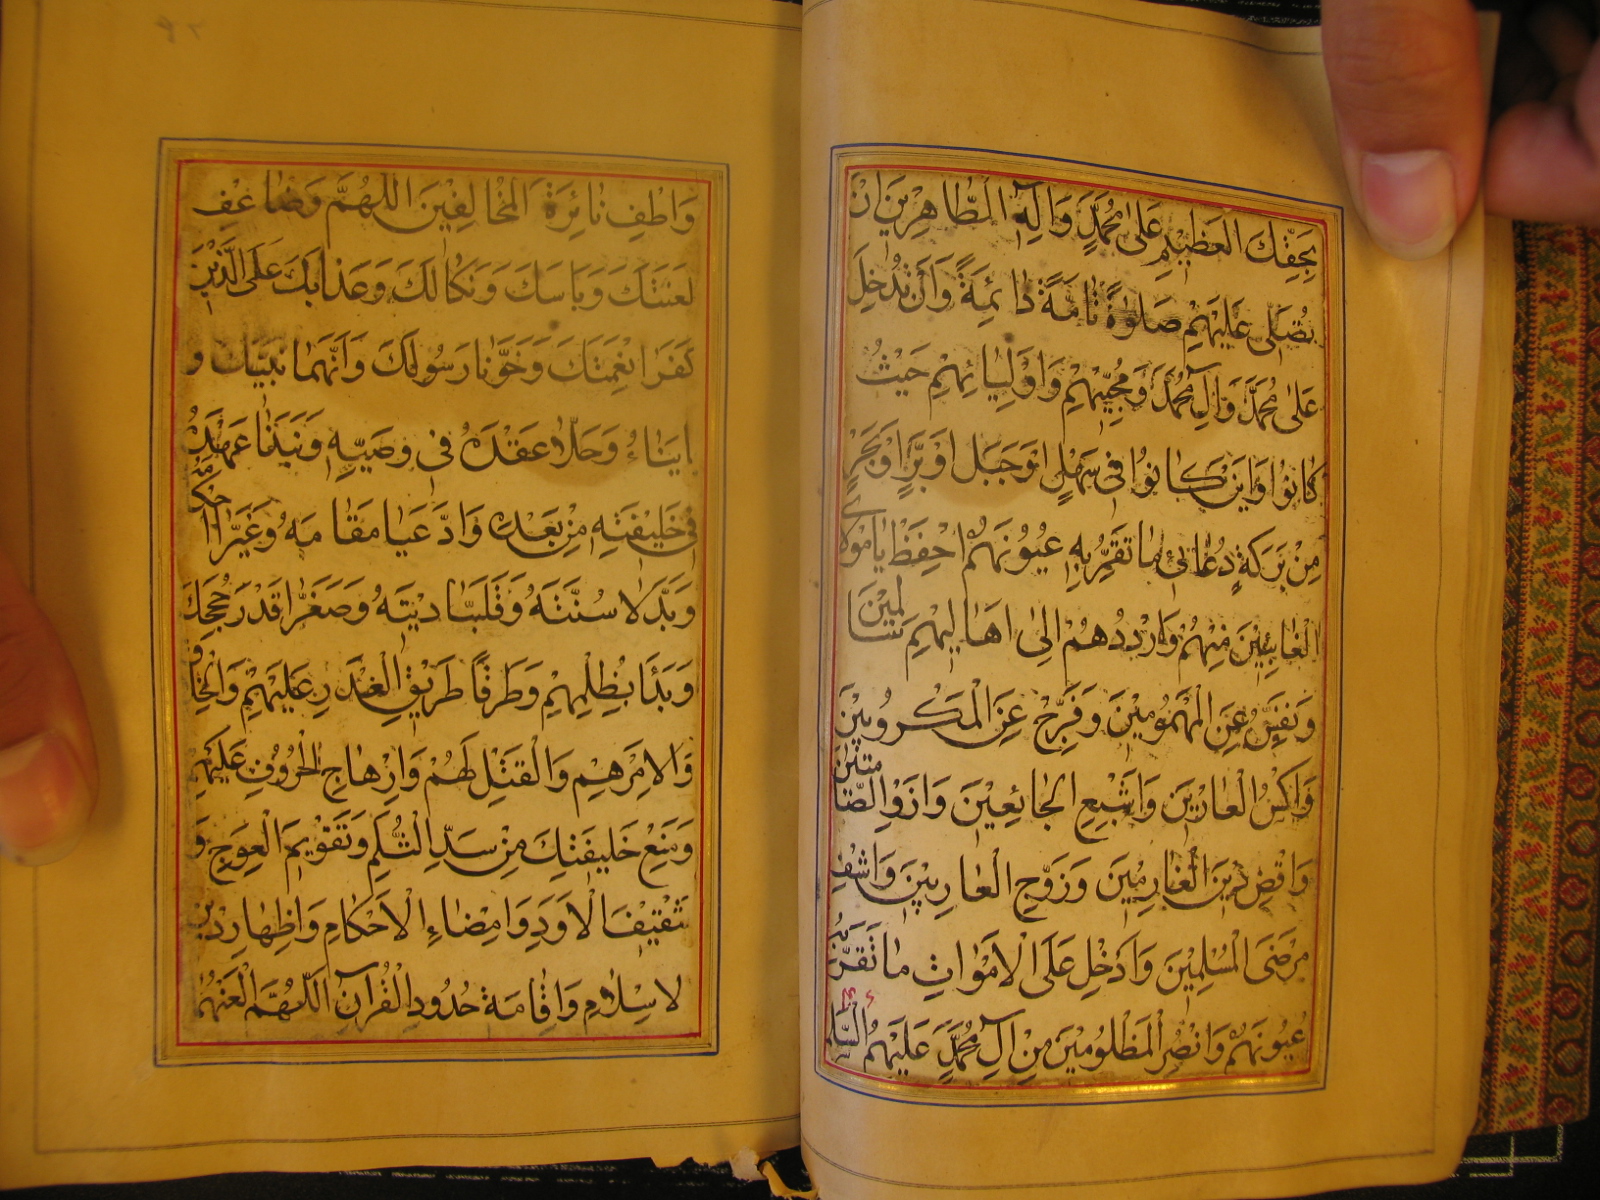 بِحَقِّكَ العَظيمِ عَلىٰ مُحَمَّدٍ وَآلِهِ الطّاهِرينَ اَنْ
تُصَلِّىَ عَلَيْهِمْ صَلوٰةً تٰامَّةً دٰائِمَةً وَأَنْ تُدْخِلَ
عَلىٰ مُحَمَّدٍ وَآلِ مُحَمَّدٍ وَمُحِبّيهِمْ وَاَوْلِيٰائِهِمْ حَيْثُ
كٰانُوا وَاَيْنَ كٰانُوا فى سَهْلٍ اَوْجَبَلٍ اَوْبَرٍّ اَوْبَحْرٍ
مِنْ بَرَكَةِ دُعٰائى مٰا تَقَرُّ بِهِ عُيُونُهُمْ اِحْفِظْ يٰامَوْلاىَ
الْغٰائِبينَ مِنْهُمْ وَارْدُدْهُمْ اِلىٰ اَهٰاليهِمْ سٰالِمينَ
وَنَفِّسْ عَنِ الْمَهْمُومينَ وَفَرِّجْ عَنِ الْمَكْرُوبينَ
وَاكْسُ الْعٰارينَ وَاَشْبِعِ الجٰائِعينَ وَاَرْوِ الصّٰا
وَاقْضِ دَيْنَ الْغٰارِمينَ وَزَوِّجِ الْعٰازِبينَ وَاشْفِ
مَرْضَى الْمُسْلِمينَ وَاَدْخِلْ عَلَى الْاَمْوٰاتِ مٰا تَقَرُّ بِهِ
عُيُونُهُمْ وَانْصُرِ الْمَظْلُومينَ مِنْ آلِ مُحَمَّدٍ عَلَيْهِمُ السَّلٰم
وَاَطْفِ نٰائِرَةَ الْمُخٰالِفينَ اَللّٰهُمَّ وَضٰاعِفْ
لَعْنَتَكَ وَبَاْسَكَ وَنَكٰالَكَ وَعَذٰابَكَ عَلَى الَّذَيْنِ
كَفَرٰا نِعْمَتَكَ وَخَوَّنٰا رَسُولَكَ وَاتَّهَمٰا نَبِيَّكَ وَ
بٰايَنٰاهُ وَحَلّاٰ عَقْدَهُ فى وَصِيِّهِ وَنَبَذٰا عَهْدَهُ
فى خَليفَتِهِ مِنْ بَعْدِهِ وَادَّعَيٰا مَقٰامَهُ وَغَيَّرٰا اَحْكٰامَهُ
وَبَدَّلاٰ سُنَّتَهُ وَقَلَّبٰا دينَهُ وَصَغَّرٰا قَدْرَ حُجَجِكَ
وَبَدَءَا بِظُلْمِهِمْ وَطَرَّقٰا طَريقَ الْغَدْرِ عَلَيْهِمْ وَالْخِلٰافِ
وَالاَمْرِهِمْ وَالْقَتْلِ لَهُمْ وَاِرْهٰاجِ الْحُرُوبِ عَلَيْهِمْ
وَمَنْعِ خَليفَتِكَ مِنْ سَدِّ الثُّلَمِ وَتَقْويمِ الْعِوَجِ وَ
تَثْقيفِ الْاَوَدِ وَاِمْضٰاءِ الْاَحْكٰامِ وَاِظْهٰارِ دينِ
لاسْلٰامِ وَاِقٰامَةِ حُدُودِ الْقُرْآنِ اَللّٰهُمَّ الْعَنْهُمٰا